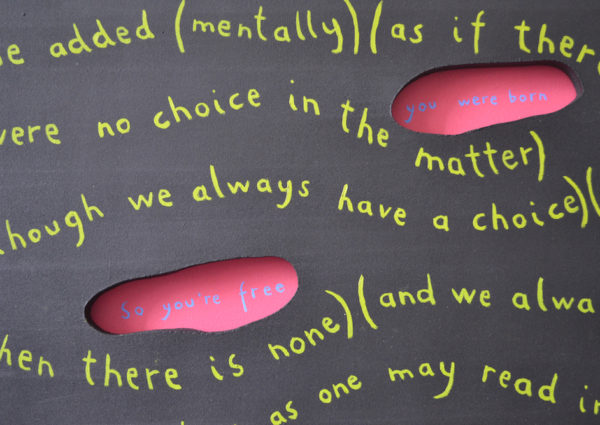 e added (mentally)(as if there
were no choice in the matter)
you were born
though we always have a choice)(
So you're free
hen there is none)(and we alwa
as one may read in